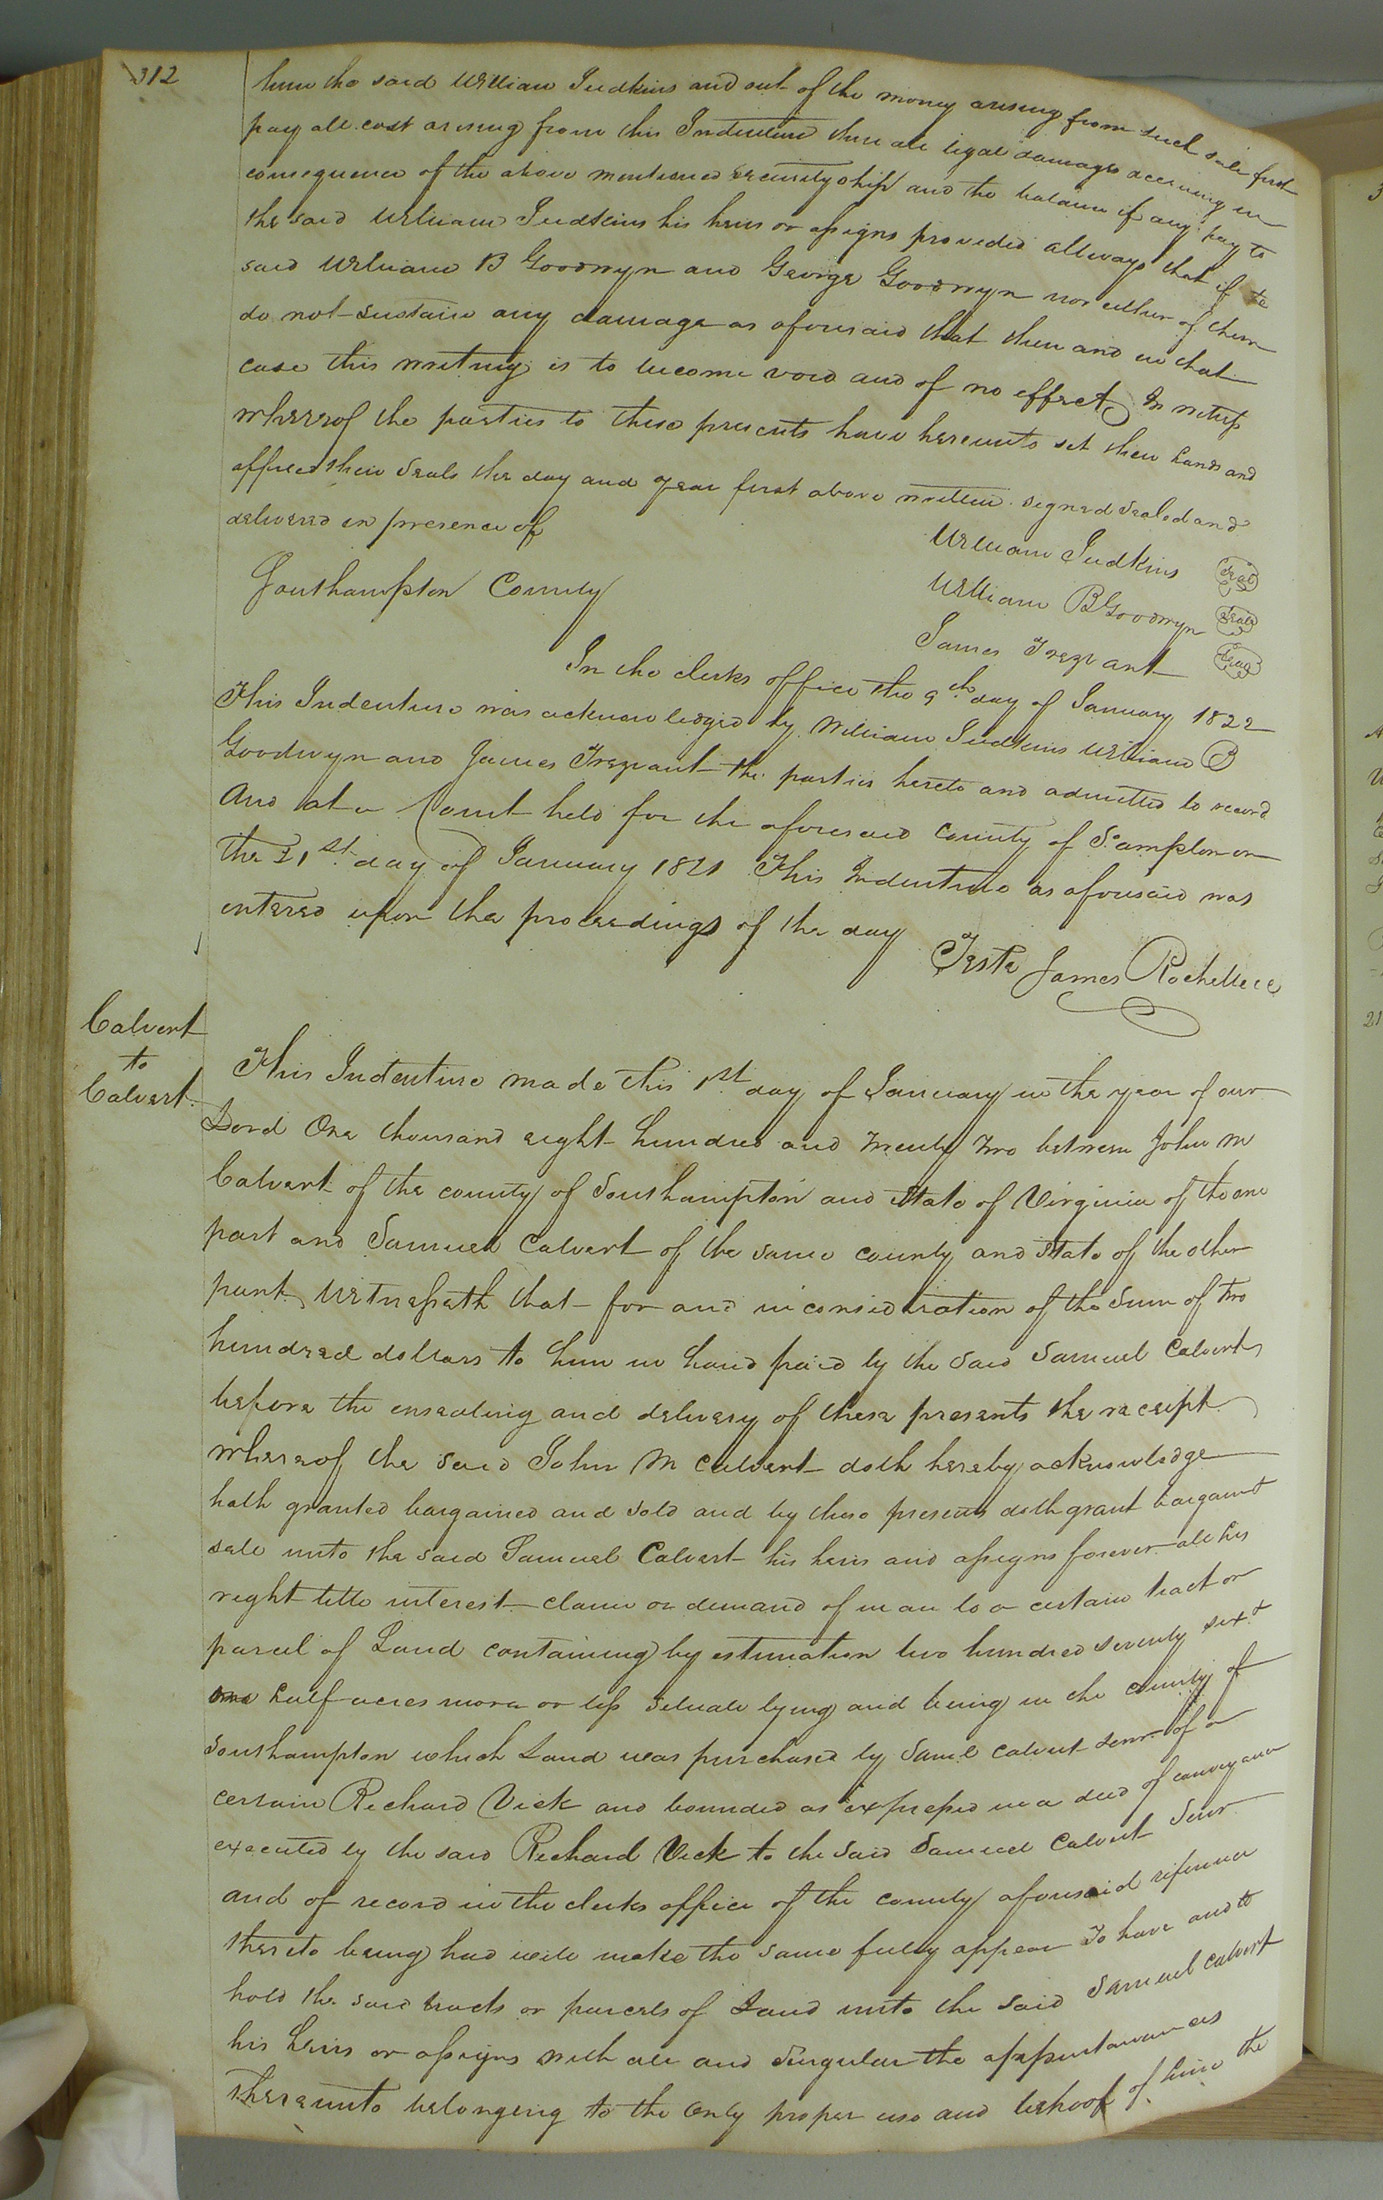 312
him the said William Judkins and out of the money arising from such sale first
pay all cost arising from this Indenture then all legal damages accruing in
consequence of the above mentioned securityship and the balance if any pay to
the said William Judkins his heirs or assigns provided allways that if the
said William B Goodwyn and George Goodwyn nor either of them
do not sustain any damage as aforesaid that then and in that
case this writing is to become void and of no effect In witness
whereof the parties to these presents have hereunto set their hands and
affixed their Seals the day and year first above written signed Sealed and
delivered in presence of
William Judkins seal
William B Goodwyn seal
James Trezvant seal
Southampton County
In the clerks office the 9th day of January 1822
This Indenture was acknowledged by William Judkins William B
Goodwyn and James Trezvant the parties hereto and admitted to record
And at a Court held for the aforesaid county of S.ampton on
the 21st day of January 1821 This Indenture as aforesaid was
entered upon the proceedings of the day
Teste James Rochelle cc
Calvert
to
Calvert
This Indenture made this 1st day of January in the year of our
Lord One thousand eight hundred and twenty two between John M
Calvert of the county of Southampton and State of Virginia of the one
part and Samuel Calvert of the same county and State of the other
part, Witnesseth that for and in consideration of the Sum of two
hundred dollars to him in hand paid by the said Samuel Calvert
before the ensealing and delivery of these presents the receipt
whereof the said John M Calvert doth hereby acknowledge
hath granted bargained and sold and by these presents doth grant bargain &
sale unto the said Samuel Calvert his heirs and assigns forever all his
right title interest claim or demand of in an to a certain tract or
parcel of Land containing by estimation two hundred seventy six &
one half acres more or less situate lying and being in the county of
Southampton which Land was purchased by Saml Calvert Senr. of a
certain Richard Vick and bounded as expressed in a deed of conveyance
executed by the said Richard Vick to the said Samuel Calvert Senr
and of record in the clerks office of the county aforesaid reference
thereto being had will make the same fully appear To have and to
hold the said tracts or parcels of Land unto the said Samuel Calvert
his heirs or assigns with all and Singular the appurtenances
thereunto belonging to the only proper use and behoof of him the